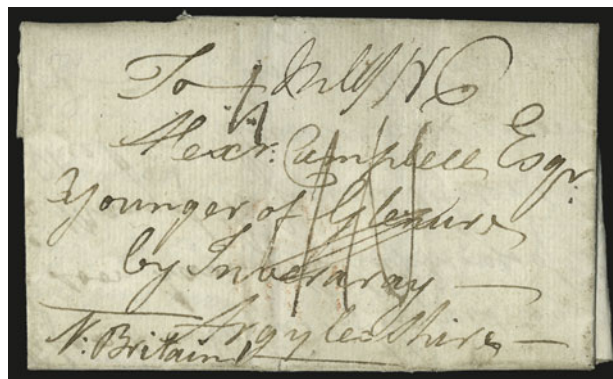 To
Alexr. Campbell Esqr.
Younger of Glenure
by Inveraray
Argyleshire
N. Britain